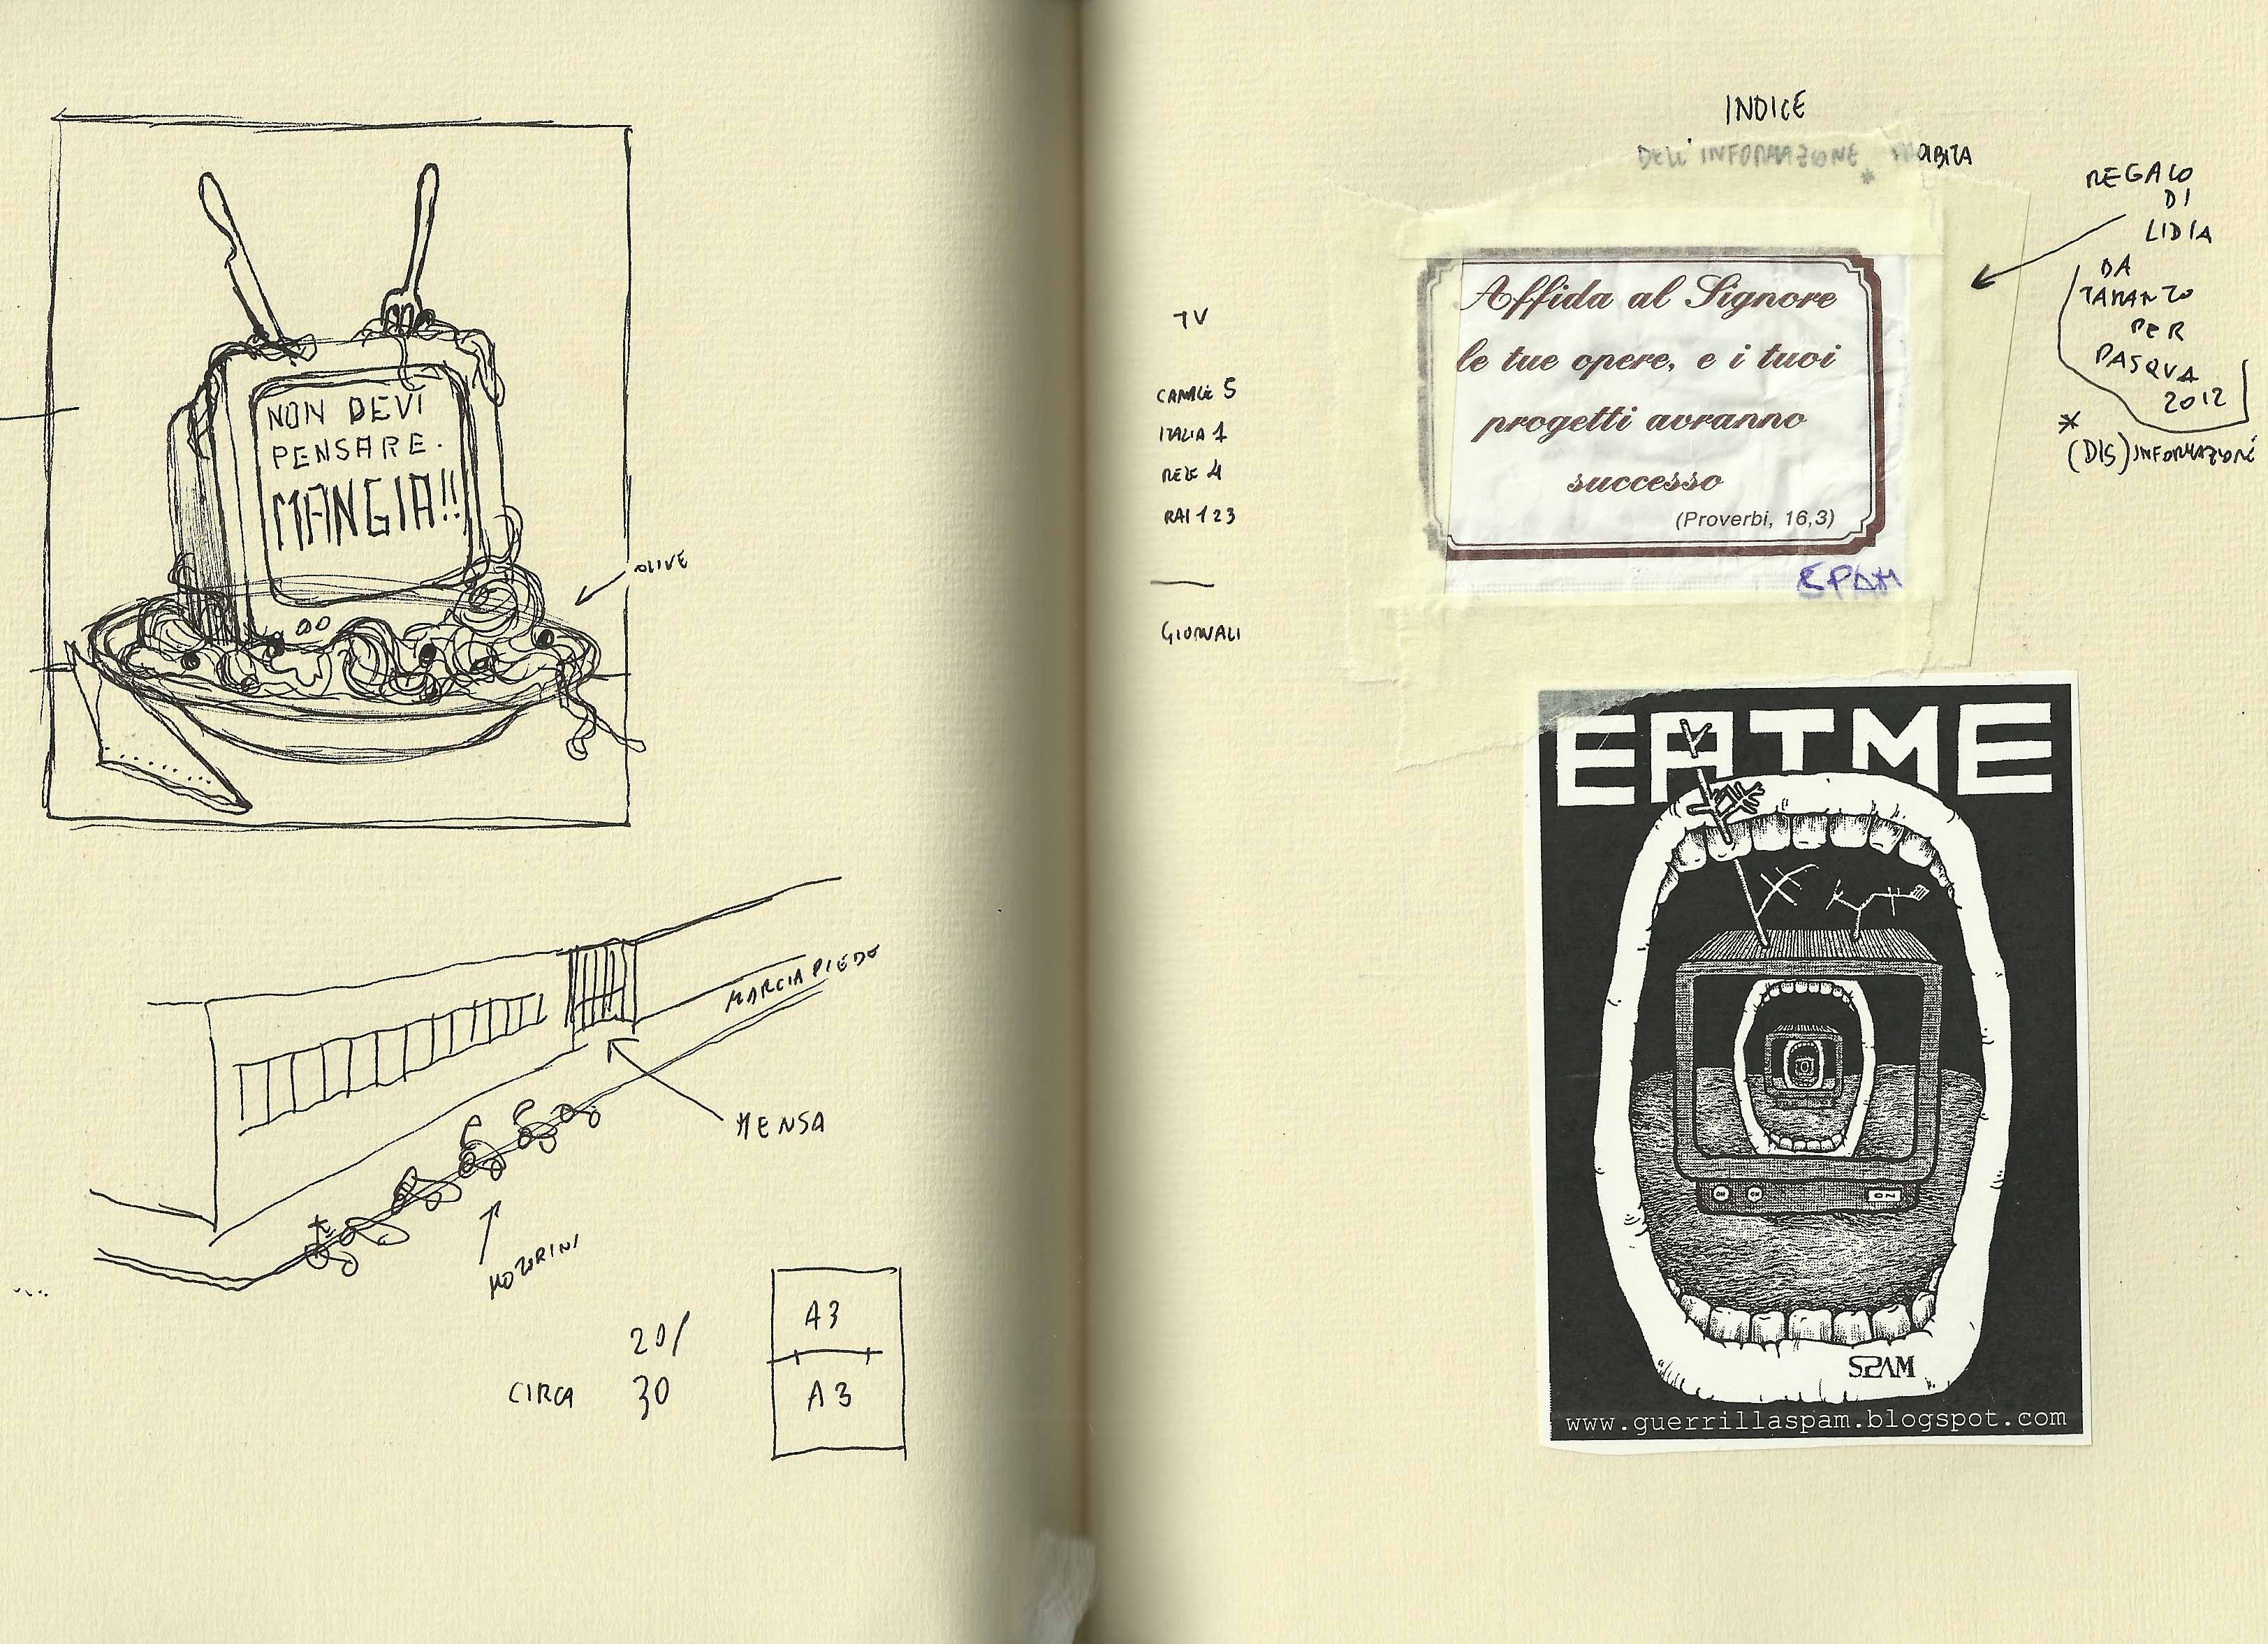 NON DEVI
PENSARE.
MANGIA!!
OLIVE
MARCIAPIEDE
MENSA
MOTORINI
20/
CIRCA 30
A3
A3
INDICE
DELL'INFORMAZIONE
*
REGALO
DI
LIDIA
DA
TARANTO
PER
PASQUA
2012
*
(DIS)INFORMAZIONE
TV
CANALE 5
ITALIA 1
RETE 4
RAI 1 2 3
GIORNALI
Affida al Signore
le tue opere, e i tuoi
progetti avranno
successo
(Proverbi, 16,3)
SPAM
EATME
ON ON ON
SPAM
www.guerrillaspam.blogspot.com